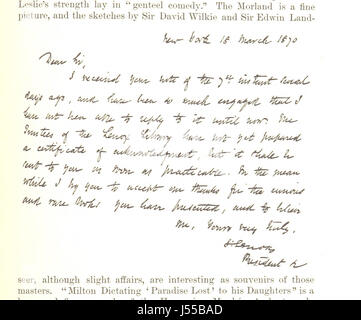 Leslie's strength lay in "genteel comedy." The Morland is a fine
picture, and the sketches by Sir David Wilkie and Sir Edwin Land-
New York 18. March 1870
Dear Sir,
I received your note of the 7th instant several
days ago, and have been so much engaged that I
have not been able to reply to it until now. The
Trustees of the Lenox Library have not yet prepared
a certificate of acknowledgment, but it shall be
sent to you as soon as practicable. In the mean
while I beg you to accept my thanks for the curious
and rare books you have presented, and to believe
me, Yours very truly,
Lenox
President &
seer, although slight affairs, are interesting as souvenirs of those
masters. "Milton Dictating 'Paradise Lost' to his Daughters" is a
alamy
Image ID: J55BAD
www.alamy.com